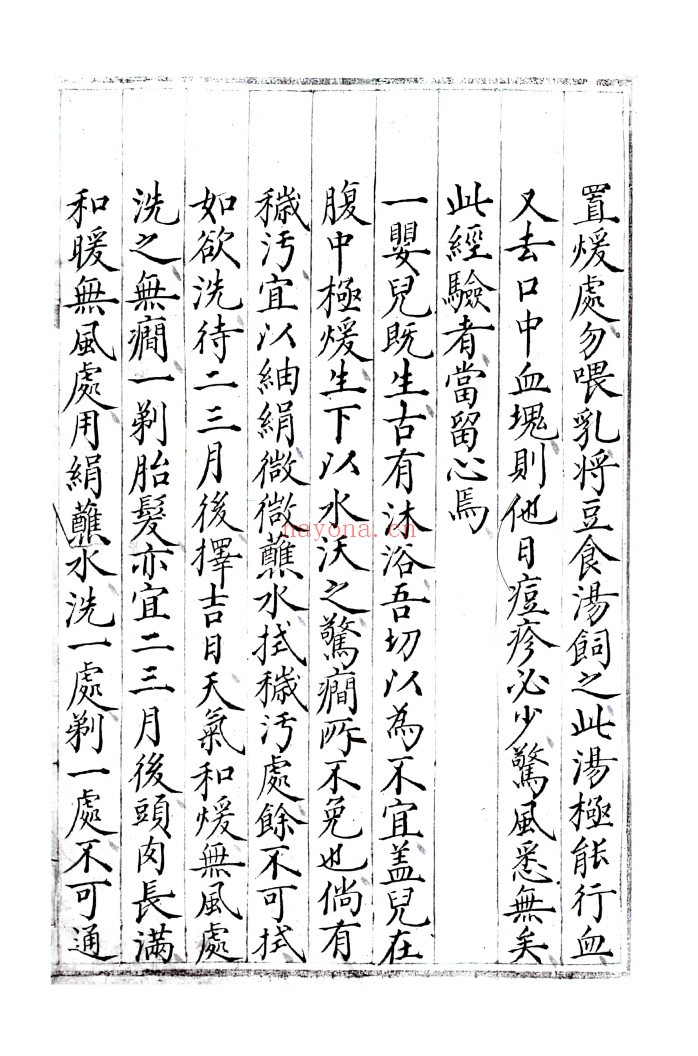 置煖處勿喂乳将豆食湯飼之此湯極能行血
又去口中血塊則他日痘疹必少驚風悉無矣
此經驗者當留心焉
一嬰兒既生古有沐浴吾切以為不宜盖兒在
腹中極煖生下以水沃之驚癇所不免也倘有
穢汚宜以紬絹微微蘸水拭穢汚處餘不可拭
如欲洗待二三月後擇吉日天氣和煖無風處
洗之無癇一剃胎髮亦宜二三月後頭囟長滿
和暖無風處用絹蘸水洗一處剃一處不可通
nayona.cn